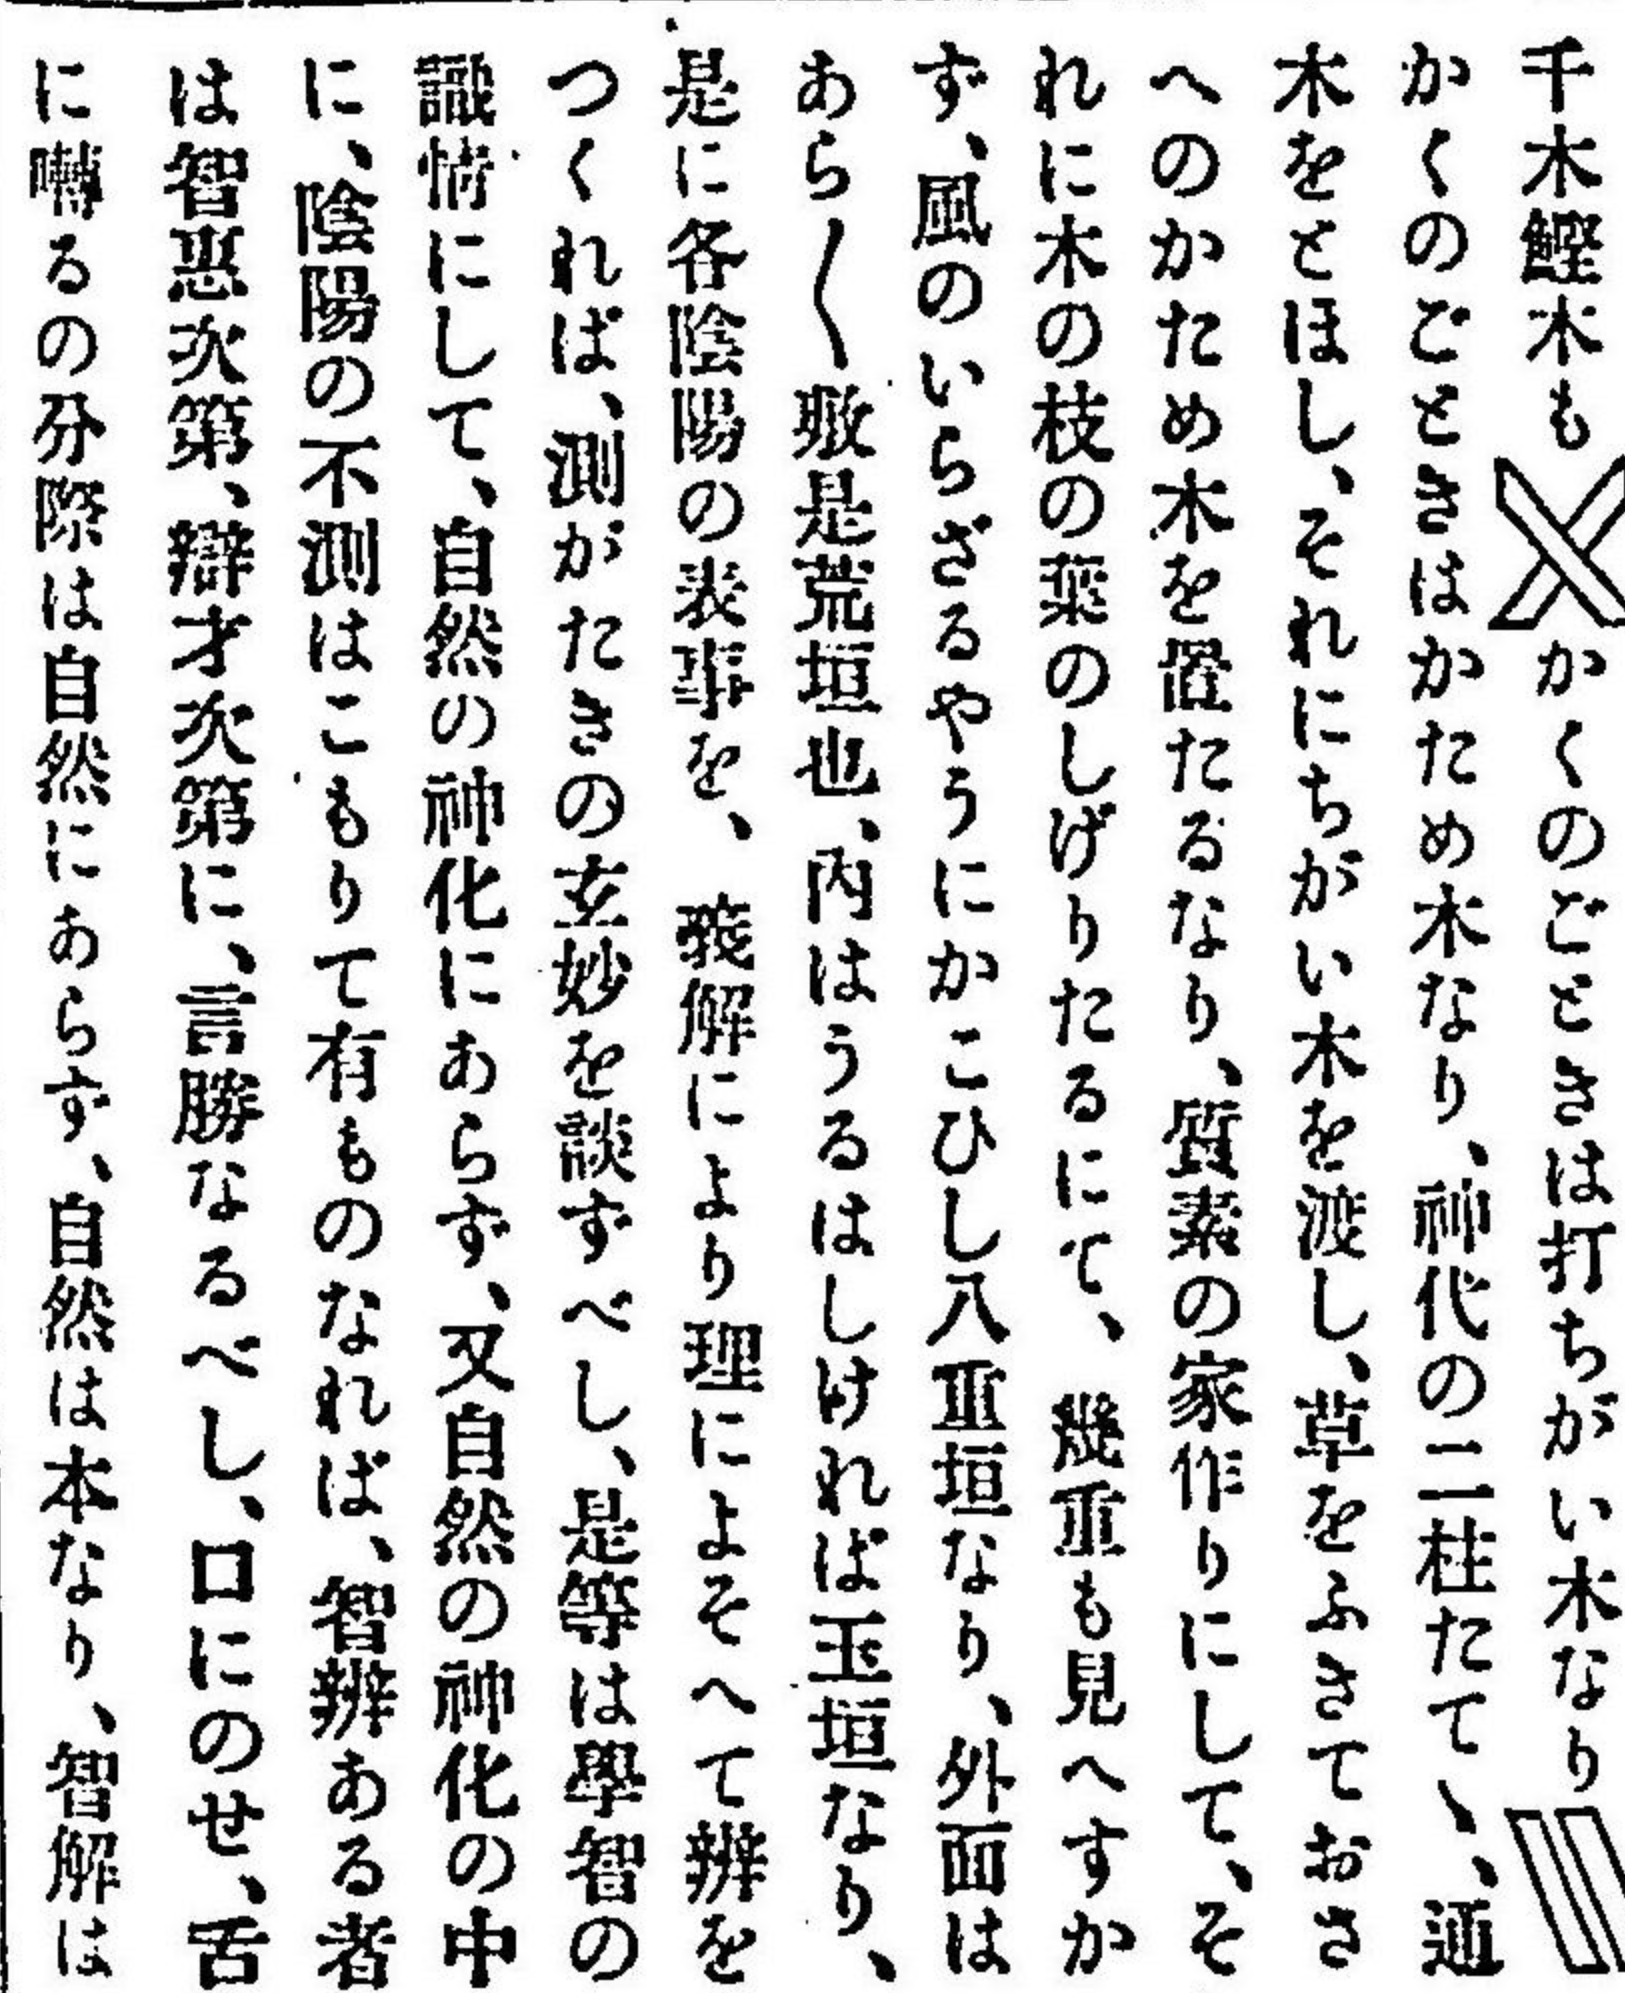 千木鰹木もかくのごときは打ちがい木なり
かくのごときはかため木なり、神代の二柱たてヽ、通
木をとほし、それにちがい木を渡し、草をふきておさ
へのかため木を置たるなり、質素の家作りにして、そ
れに木の枝の葉のしげりたるにて、幾重も見へすか
ず、風のいらざるやうにかこひし八重垣なり、外面は
あら〱敷是荒垣也、内はうるはしければ玉垣なり、
是に各陰陽の表事を、義解により理によそへて辨を
つくれば、測がたきの玄妙を談ずべし、是等は學智の
識情にして、自然の神化にあらず、又自然の神化の中
に、陰陽の不測はこもりて有ものなれば、智辨ある者
は智惠次第、辯才次第に、言勝なるべし、口にのせ、舌
に囀るの分際は自然にあらず、自然は本なり、智解は